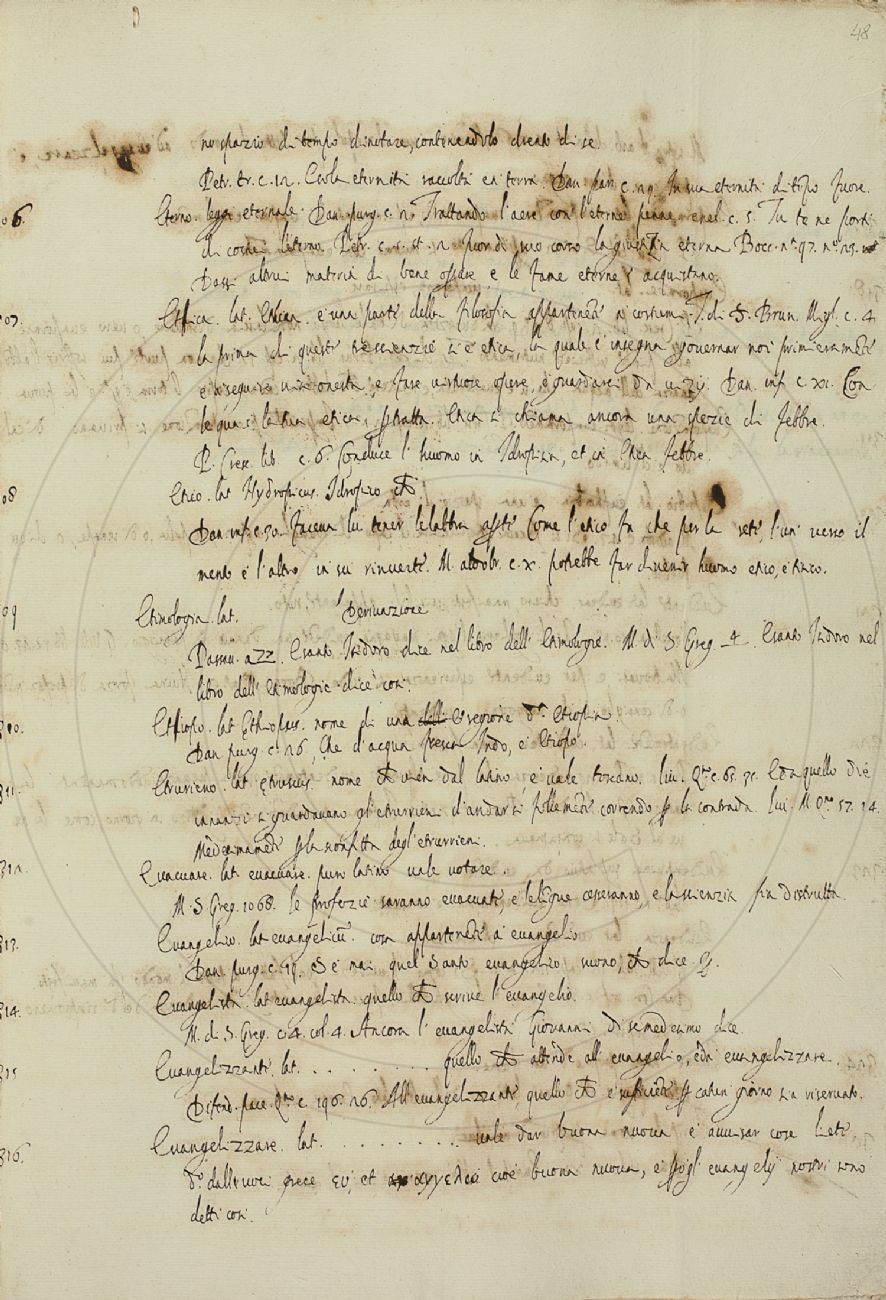 48
no spazio di tempo dinotare, contenendolo drento di se
Petr. tr. c. 12. eternità raccolta en terra. Dan par. c. 29. In sua eternità di tempo fuore.
06. Eterno. legge eternale. Dan. purg. c. 2. Trattando l'aere con l'eterne penne, e nel. c. 5. Tu te ne porti
di costui l'eterno. Petr. c. st. 2. fuor di suo corso la giustizia eterna Bocc. n. 97. n. 25.
altrui materia di bene operare e le fame eterne s'acquistano.
07. Ethica. lat. Ethica. è una parte della filosofia appartenente a costumi. T. di S. Brun. c. 4
la prima di queste tre scienzie si è etica, la quale c' insegna governar noi primieramente
e a seguire vita onesta, e fare virtuose opere, e guardarci da vizij. Dan. inf. c. xi. Con
le quai la tua etica pertratta. Etica si chiama ancora una spezie di febbre.
P. Cresc. lib. c. 6. Conduce l' huomo in Idropisia, et in Etica febbre.
08 Etico. lat Hydropicus. Idropico, che
Dan inf. c. 30. Faceva lui tener le labbra aperte Come l'etico fa, che per la sete, l'un verso il
mento e l'altro in su rinverte. M. aldobr. c. x. potrebbe far divenir huomo etico, e tisico.
09 Etimologia. lat. Derivazione
Passav. 222. E santo Isidoro dice nel libro dell' Etimologie. M. di S. Greg. 4. E santo Isidoro nel
libro dell' Etimologie dice così.
810. Ethiopo. lat Ethiopus. nome di una regione Etiopia.
Dan purg. c. 26, Che d'acqua fresca Indo, e Etiopo.
811. Etrurieno. lat etruscus. nome che vien dal latino, e vale toscano. liv. c. 65. E da quello die
innanzi si guardavano gl'etrurieni d'andar sì follemente correndo per la contrada. liv. M 57. 14.
per la sconfitta degl'etrurieni.
812. Evacuare. lat. evacuare. puro latino vale votare.
M. S. Greg. 1068. le profezie saranno evacuate, e le lingue cesseranno, e la scienzia fia distrutta.
813. Evangelio. lat evangelicu. cosa appartenente a evangelio
Dan. purg. c. 19. Se mai quel santo evangelio suono, che dice
814. Evangelista. lat evangelista. quello che scrive l'evangelio.
M. di S. Greg. c. 4. col 4. Ancora l' evangelista Giovanni di se medesimo dice.
815 Evangelizzante. lat. . . . . . . . . quello che attende all' evangelio, e da evangelizzare.
Difend. pace. c. 196. 26. All' evangelizzante, quello che è sufficiente per catun giorno sia riservato.
816. Evangelizzare. lat. . . . . . . . . . vale dar buona nuova e avvisar cose liete,
dalle voci grece ευ, et αγγελία cioè buona nuova, e però gl' evangelij nostri sono
detti così.